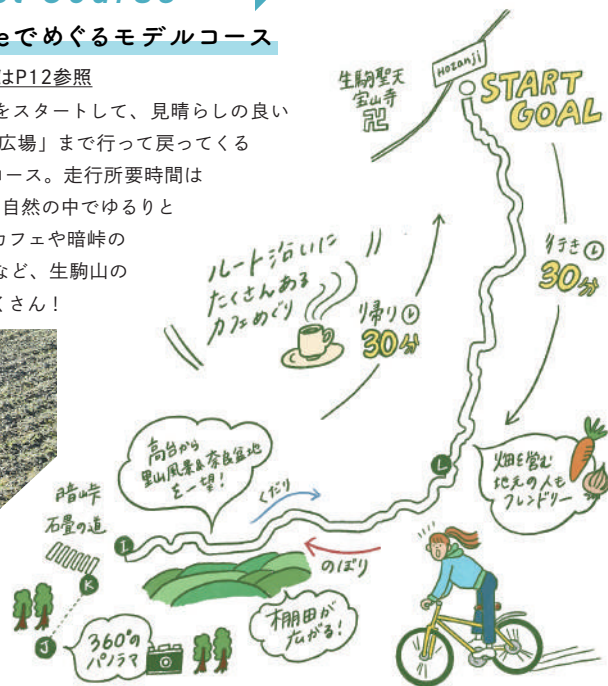 eでめぐるモデルコース
はP12参照
をスタートして、見晴らしの良い
広場」まで行って戻ってくる
コース。走行所要時間は
自然の中でゆるりと
カフェや暗峠の
など、生駒山の
くさん！
生駒聖天
宝山寺
卍
Hozanji
START
GOAL
行き
30分
ルート沿いに
たくさんある
カフェめぐり
帰り
30分
高台から
里山風景&奈良盆地
を一望！
くだり
L
畑を営む
地元の人も
フレンドリー
暗峠
石畳の道
I
K
J
のぼり
棚田が
広がる！
360°の
パノラマ